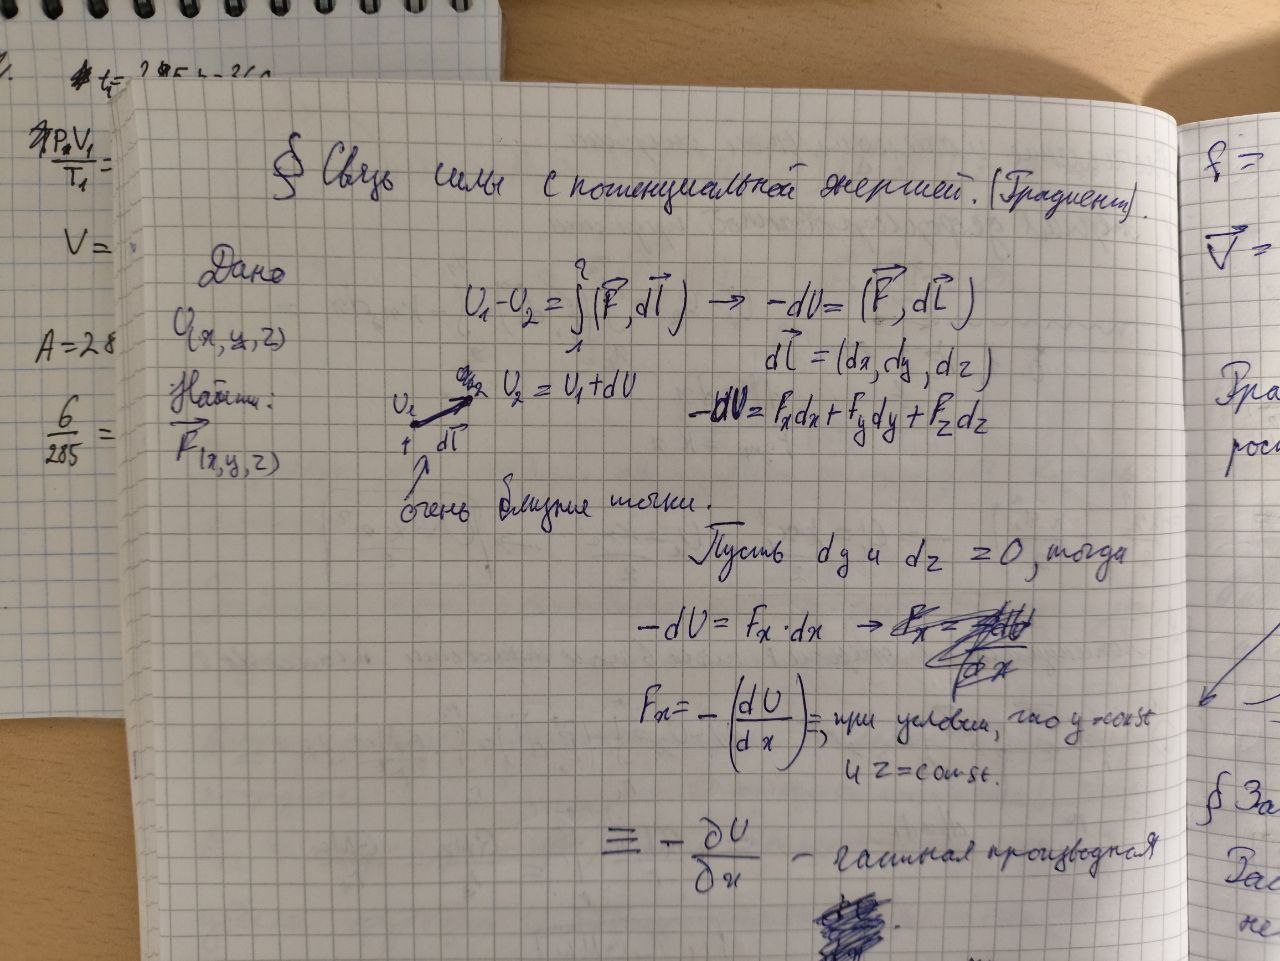 § Связь силы с потенциальной энергией. (Градиент).
Дано
U(x, y, z)
Найти:
F⃗(x, y, z)
U₁ - U₂ = ∫₁² (F⃗, dl⃗) → -dU = (F⃗, dl⃗)
dl⃗ = (dx, dy, dz)
U₁ 2 U₂ = U₁ + dU
1 dl⃗
-dU = Fₓdx + F_y dy + F_z dz
очень близкие точки.
Пусть dy и dz = 0, тогда
-dU = Fₓ · dx →
Fₓ = -(dU/dx) =, при условии, что y = const
и z = const.
≡ - ∂U/∂x - частная производная
t₁ =
P₁V₁/T₁ =
V =
A = 28
6/285 =
f =
V⃗ =
Гра
рост
§ За
Зас
не